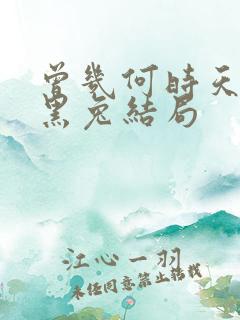 曾幾何時天
黑兔結局
江心一羽
未经同意禁止转载